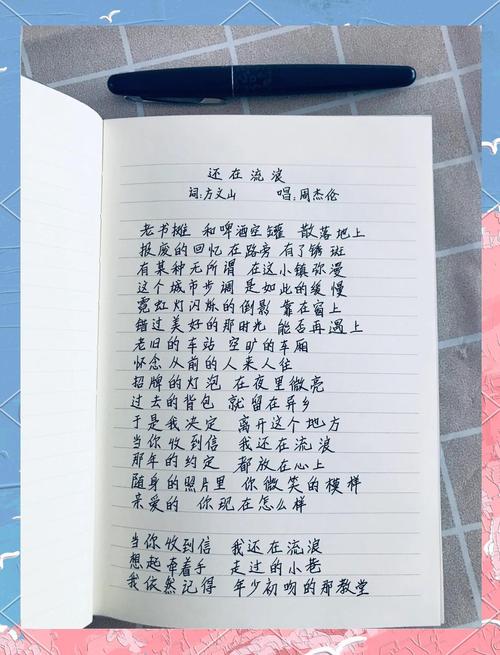 还在流浪
词:方文山 唱:周杰伦
老书摊 和啤酒空罐 散落地上
报废的回忆在路旁 有了锈斑
有某种无所谓 在这小镇弥漫
这个城市步调 是如此的缓慢
霓虹灯闪烁的倒影 靠在窗上
错过美好的那时光 能否再遇上
老旧的车站 空旷的车厢
怀念从前的人来人往
招牌的灯泡 在夜里微亮
过去的背包 就留在异乡
于是我决定 离开这个地方
当你收到信 我还在流浪
那年的约定 都放在心上
随身的照片里 你微笑的模样
亲爱的 你现在怎么样
当你收到信 我还在流浪
想起牵着手 走过的小巷
我依然记得 年少初吻的那教堂